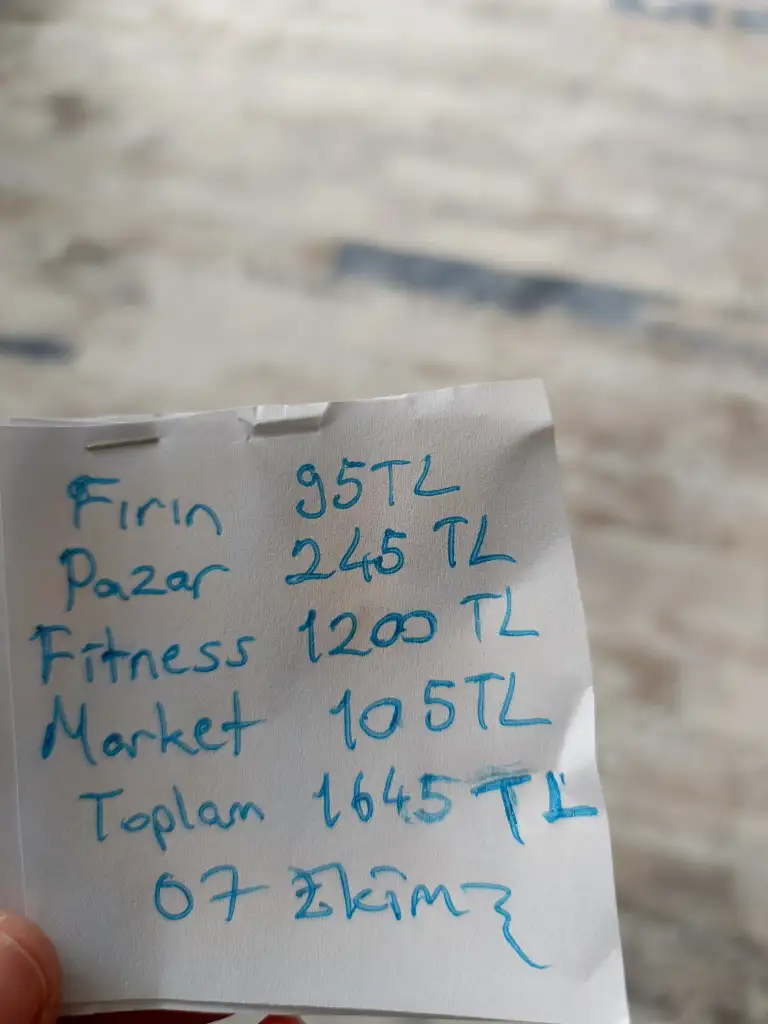 Fırın 95TL
Pazar 245 TL
Fitness 1200 TL
Market 105TL
Toplam 1645 TL
07 Ekim